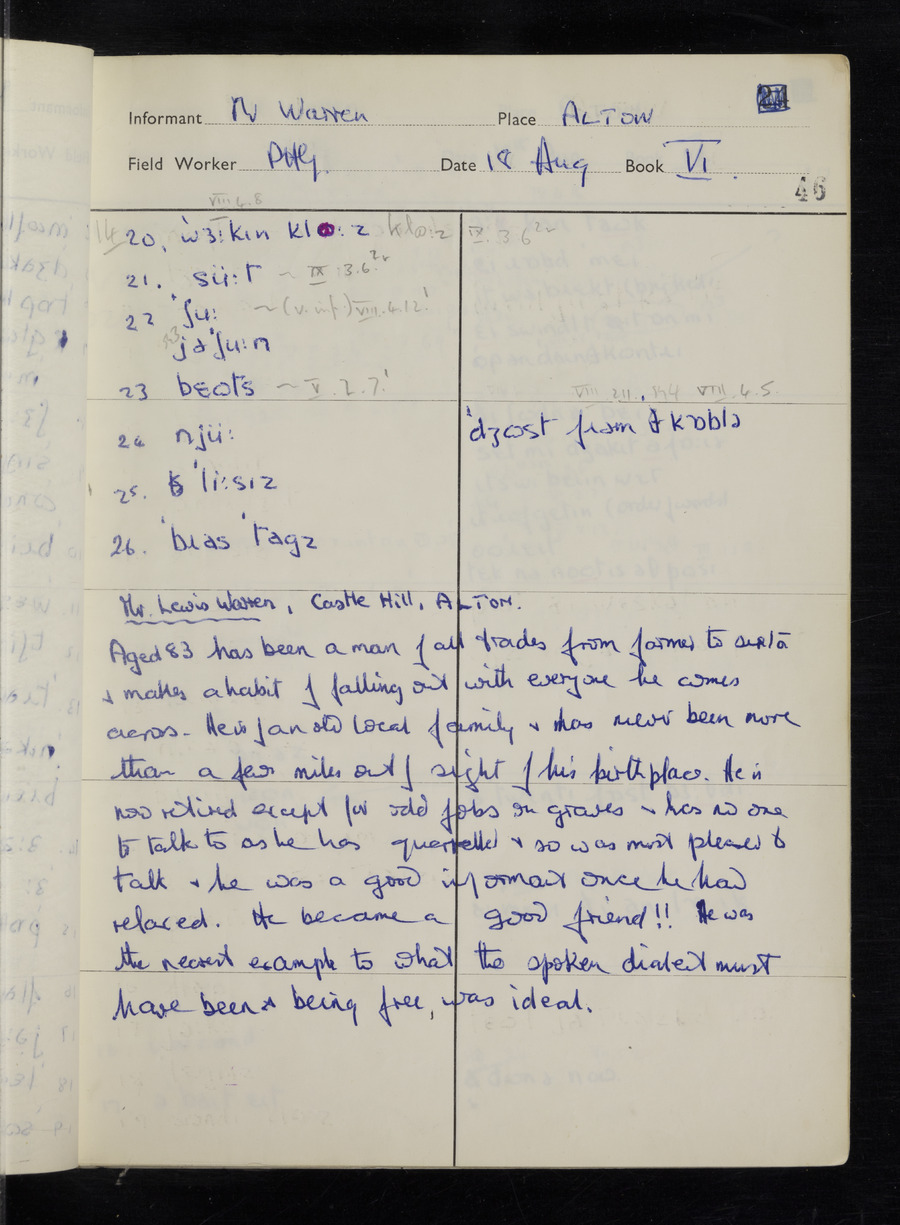 Informant Mr Warren Place ALTON
Field Worker PHG. Date 18 Aug Book VI.
46
VIII 4.8
14 20. ˈwɜːkɪn klɒːz klɒːz IX.3.6
21. süːt ~ IX.3.6
22 ʃuː ~ (v. inf.) VIII.4.12
jəˈʃuːn
23 beots ~ V.2.7
VIII 4.5.
24 njüː ˈdʒɔst from ðə kɒblə
25. ˈliːsɪz
26. ˈbɪəs ˈtagz
Mr. Lewis Warren, Castle Hill, ALTON.
Aged 83 has been a man of all trades from farmer to sexton
& makes a habit of falling out with everyone he comes
across. He is of an old local family & has never been more
than a few miles out of sight of his birthplace. He is
now retired except for odd jobs on graves & has no one
to talk to as he has quarrelled & so was most pleased to
talk & he was a good informant once he had
relaxed. He became a good friend!! He was
the nearest example to what the spoken dialect must
have been & being free, was ideal.